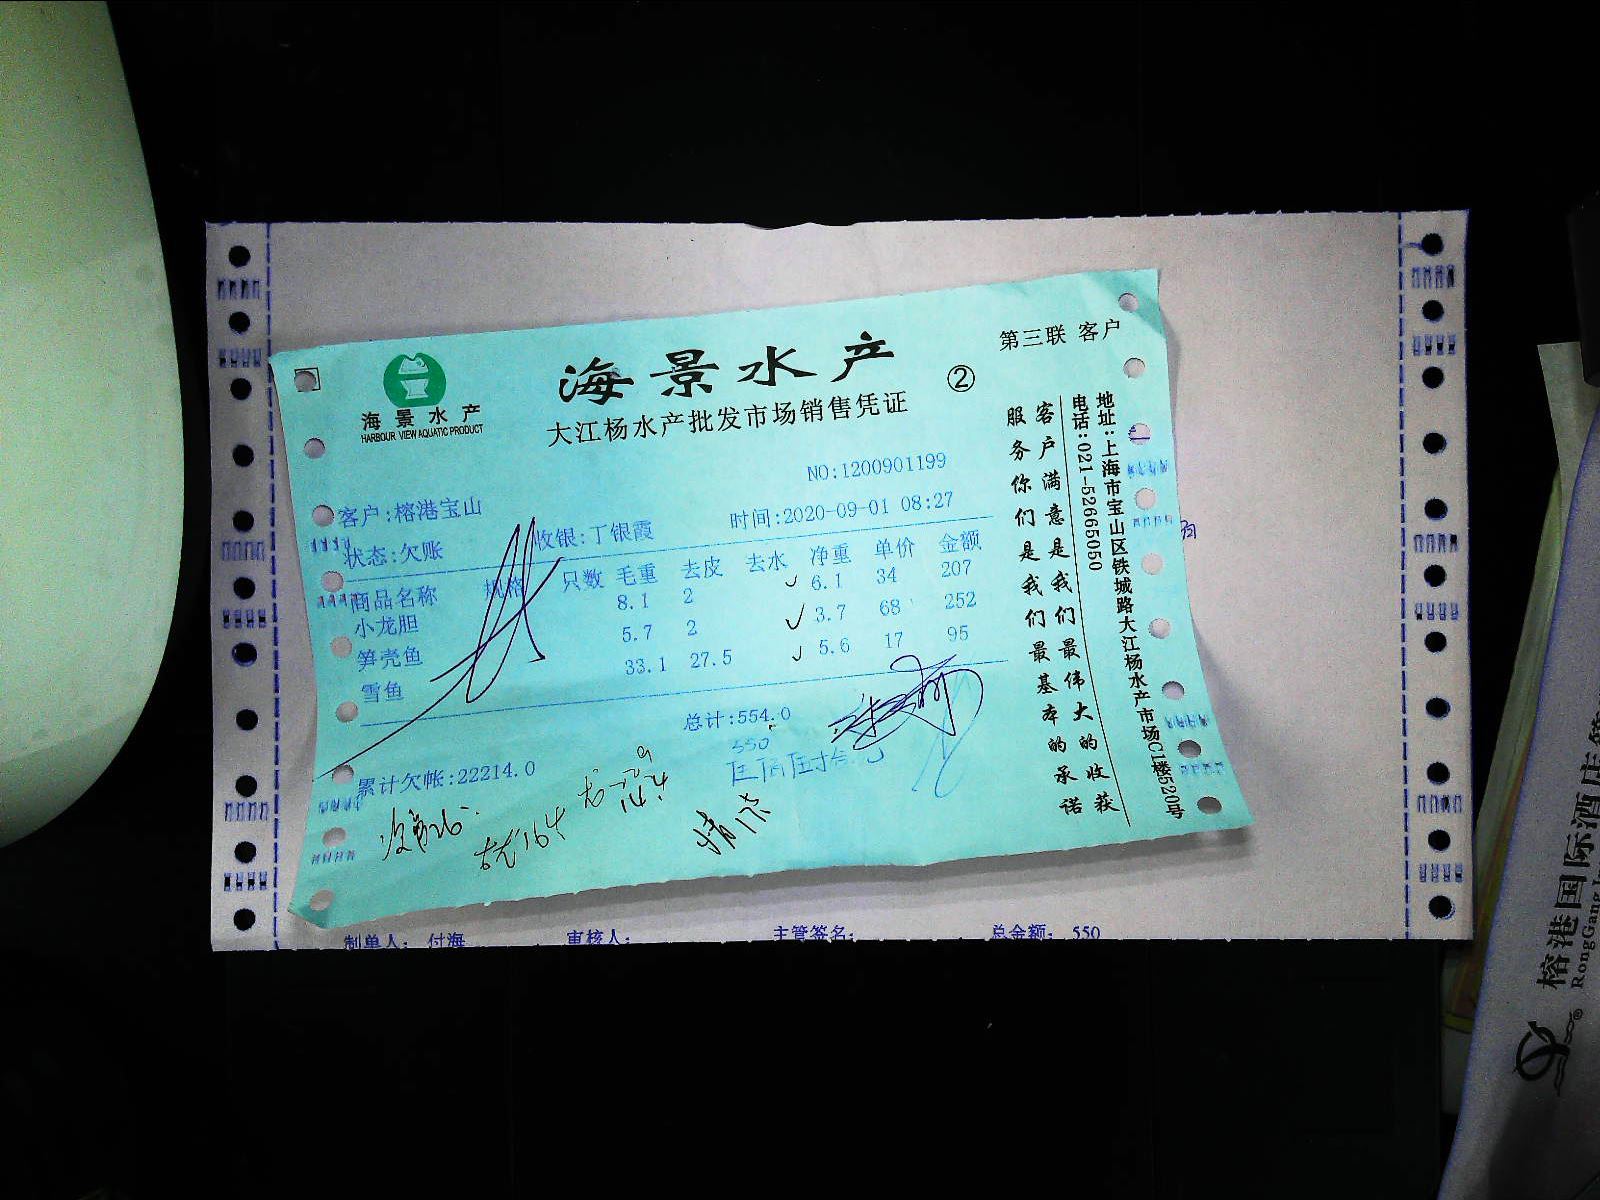 第三联 客户
海景水产
②
海景水产
HARBOUR VIEW AQUATIC PRODUCT
大江杨水产批发市场销售凭证
NO:1200901199
客户:榕港宝山
时间:2020-09-01 08:27
状态:欠账
收银:丁银霞
商品名称 规格 只数 毛重 去皮 去水 净重 单价 金额
小龙胆 8.1 2 6.1 34 207
笋壳鱼 5.7 2 3.7 68 252
雪鱼 33.1 27.5 5.6 17 95
总计:554.0
550
累计欠帐:22214.0
地址:上海市宝山区铁城路大江杨水产市场C1楼520号
电话:021-52665050
客户满意是我们最伟大的收获
服务你们是我们最基本的承诺
制单人: 付海 审核人: 主管签名: 总金额: 550
榕港国际酒店
RongGang